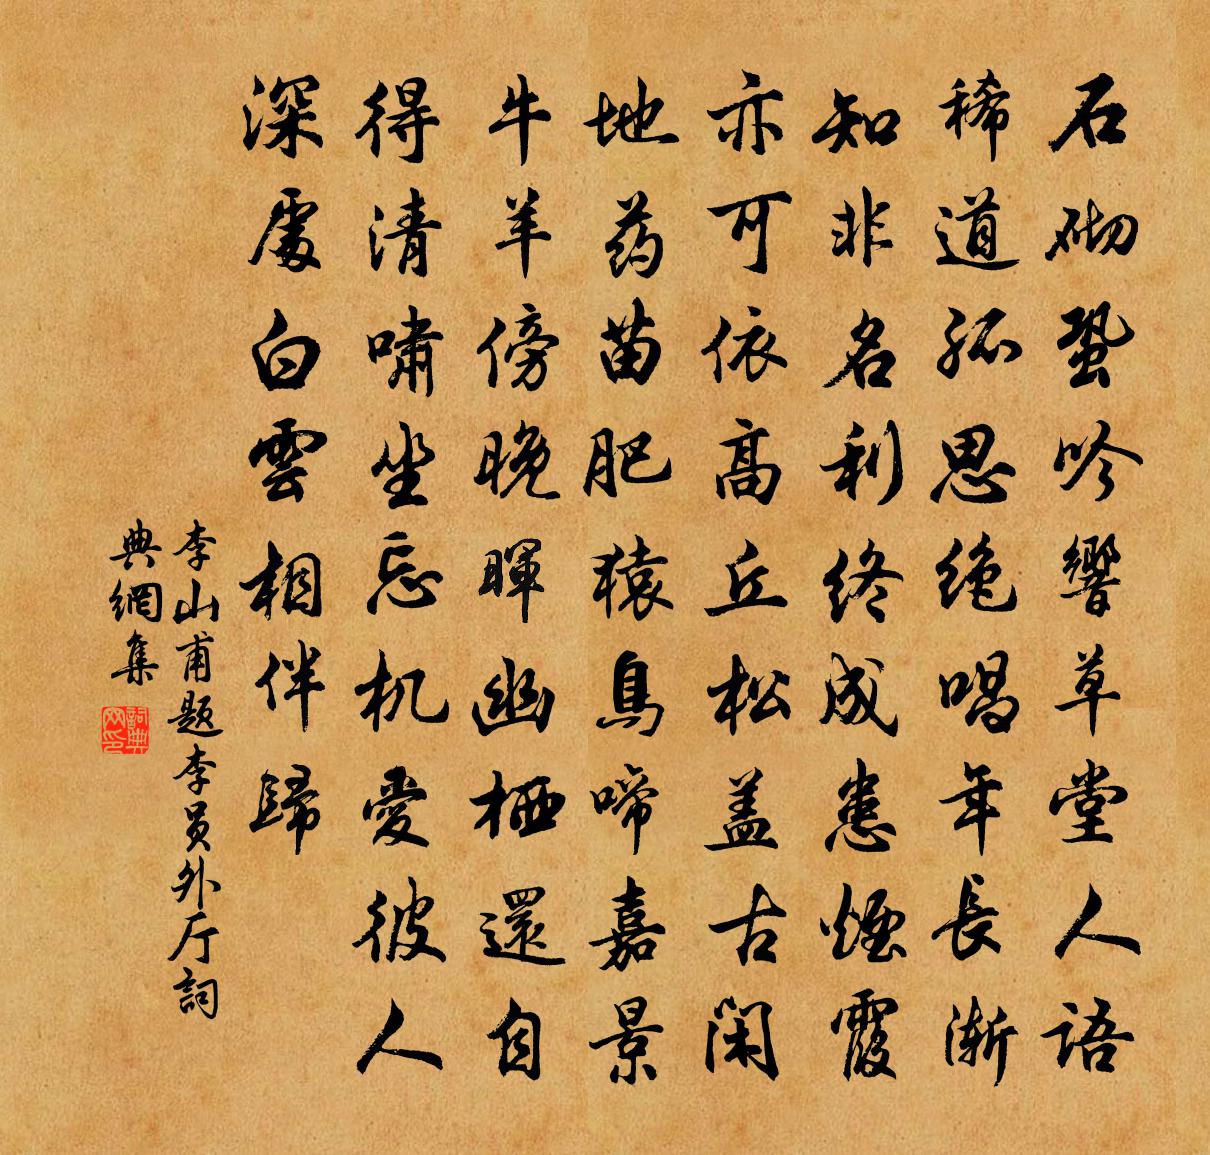 石砌蛩吟響草堂人語
稀道孤思絶唱年長漸
知非名利終成患煙霞
亦可依高丘松盖古閑
地药苗肥猿鳥啼嘉景
牛羊傍晚暉幽栖還自
得清嘯坐忘机愛彼人
深處白雲相伴歸
李山甫题李員外厅詞
典網集
詞典网印